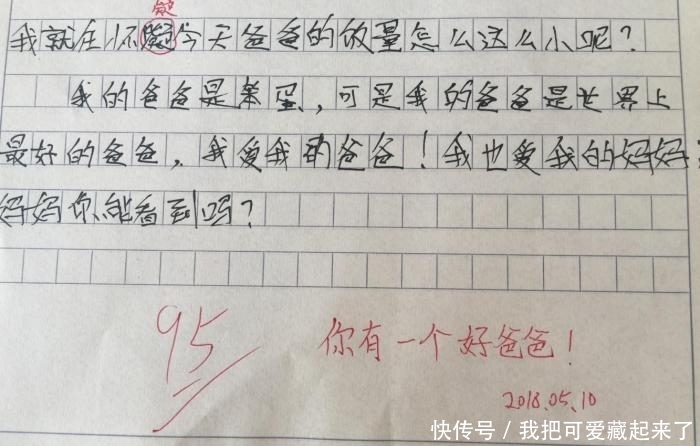 疑
我就在怀疑今天爸爸的饭量怎么这么小呢？
我的爸爸是笨蛋，可是我的爸爸是世界上
最好的爸爸，我爱我的爸爸！我也爱我的妈妈，
妈妈你能看到吗？
95
你有一个好爸爸！
2018.05.10
快传号 / 我把可爱藏起来了